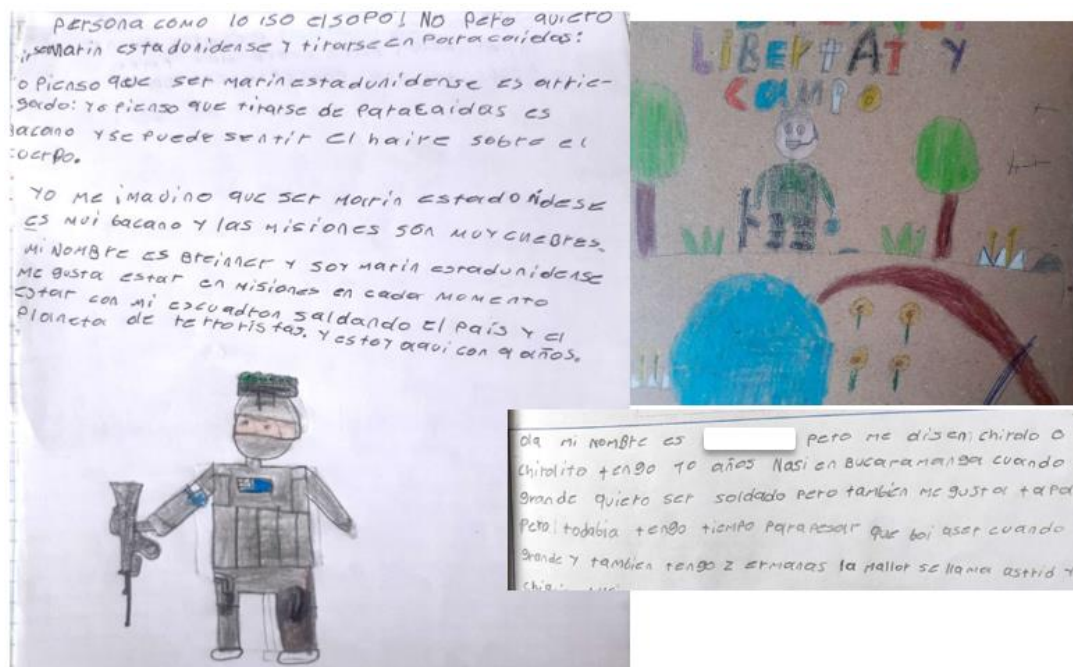 persona como lo iso el sopo! No pero quiero
ir semarin estadunidense y tirarse en paracaidas:
o pienso que ser marin estadunidense es arrie-
gado: yo pienso que tirarse de paracaidas es
bacano y se puede sentir el haire sobre el
cuerpo.
Yo me imagino que ser marin estadonidese
es mui bacano y las misiones son muy cuebres.
mi nombre es Breinner y soy marin estradunidense
me gusta estar en misiones en cada momento
estar con mi escuadron saldando el país y el
planeta de terroristas. y estoy aqui con 9 años.
LIBERTAT Y
CAMPO
ola mi nombre es pero me disen; chirolo o
chirolito tengo 10 años Nasi en Bucaramanga cuando
grande quiero ser soldado pero tambien me gustar tapa
pero! todabia tengo tiempo para pesar que boi aser cuando
grande y tambien tengo 2 ermanas la mallor se llama astrid y